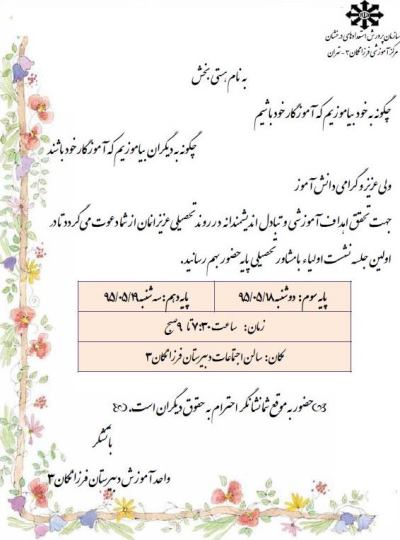 سازمان پرورش استعدادهای درخشان
مرکز آموزشی فرزانگان ۳ - تهران
به نام هستی بخش
چگونه به خود بیاموزیم که آموزگار خود باشیم
چگونه به دیگران بیاموزیم که آموزگار خود باشند
ولی عزیز و گرامی دانش آموز
جهت تحقق اهداف آموزشی و تبادل اندیشمندانه در روند تحصیلی عزیزانمان از شما دعوت می گردد تا در
اولین جلسه نشست اولیاء با مشاور تحصیلی پایه حضور بهم رسانید.
پایه سوم: دوشنبه ۹۵/۰۵/۱۸ پایه دهم: سه شنبه ۹۵/۰۵/۱۹
زمان: ساعت ۷:۳۰ تا ۹ صبح
مکان: سالن اجتماعات دبیرستان فرزانگان ۳
حضور به موقع شما نشانگر احترام به حقوق دیگران است.
با تشکر
واحد آموزش دبیرستان فرزانگان ۳